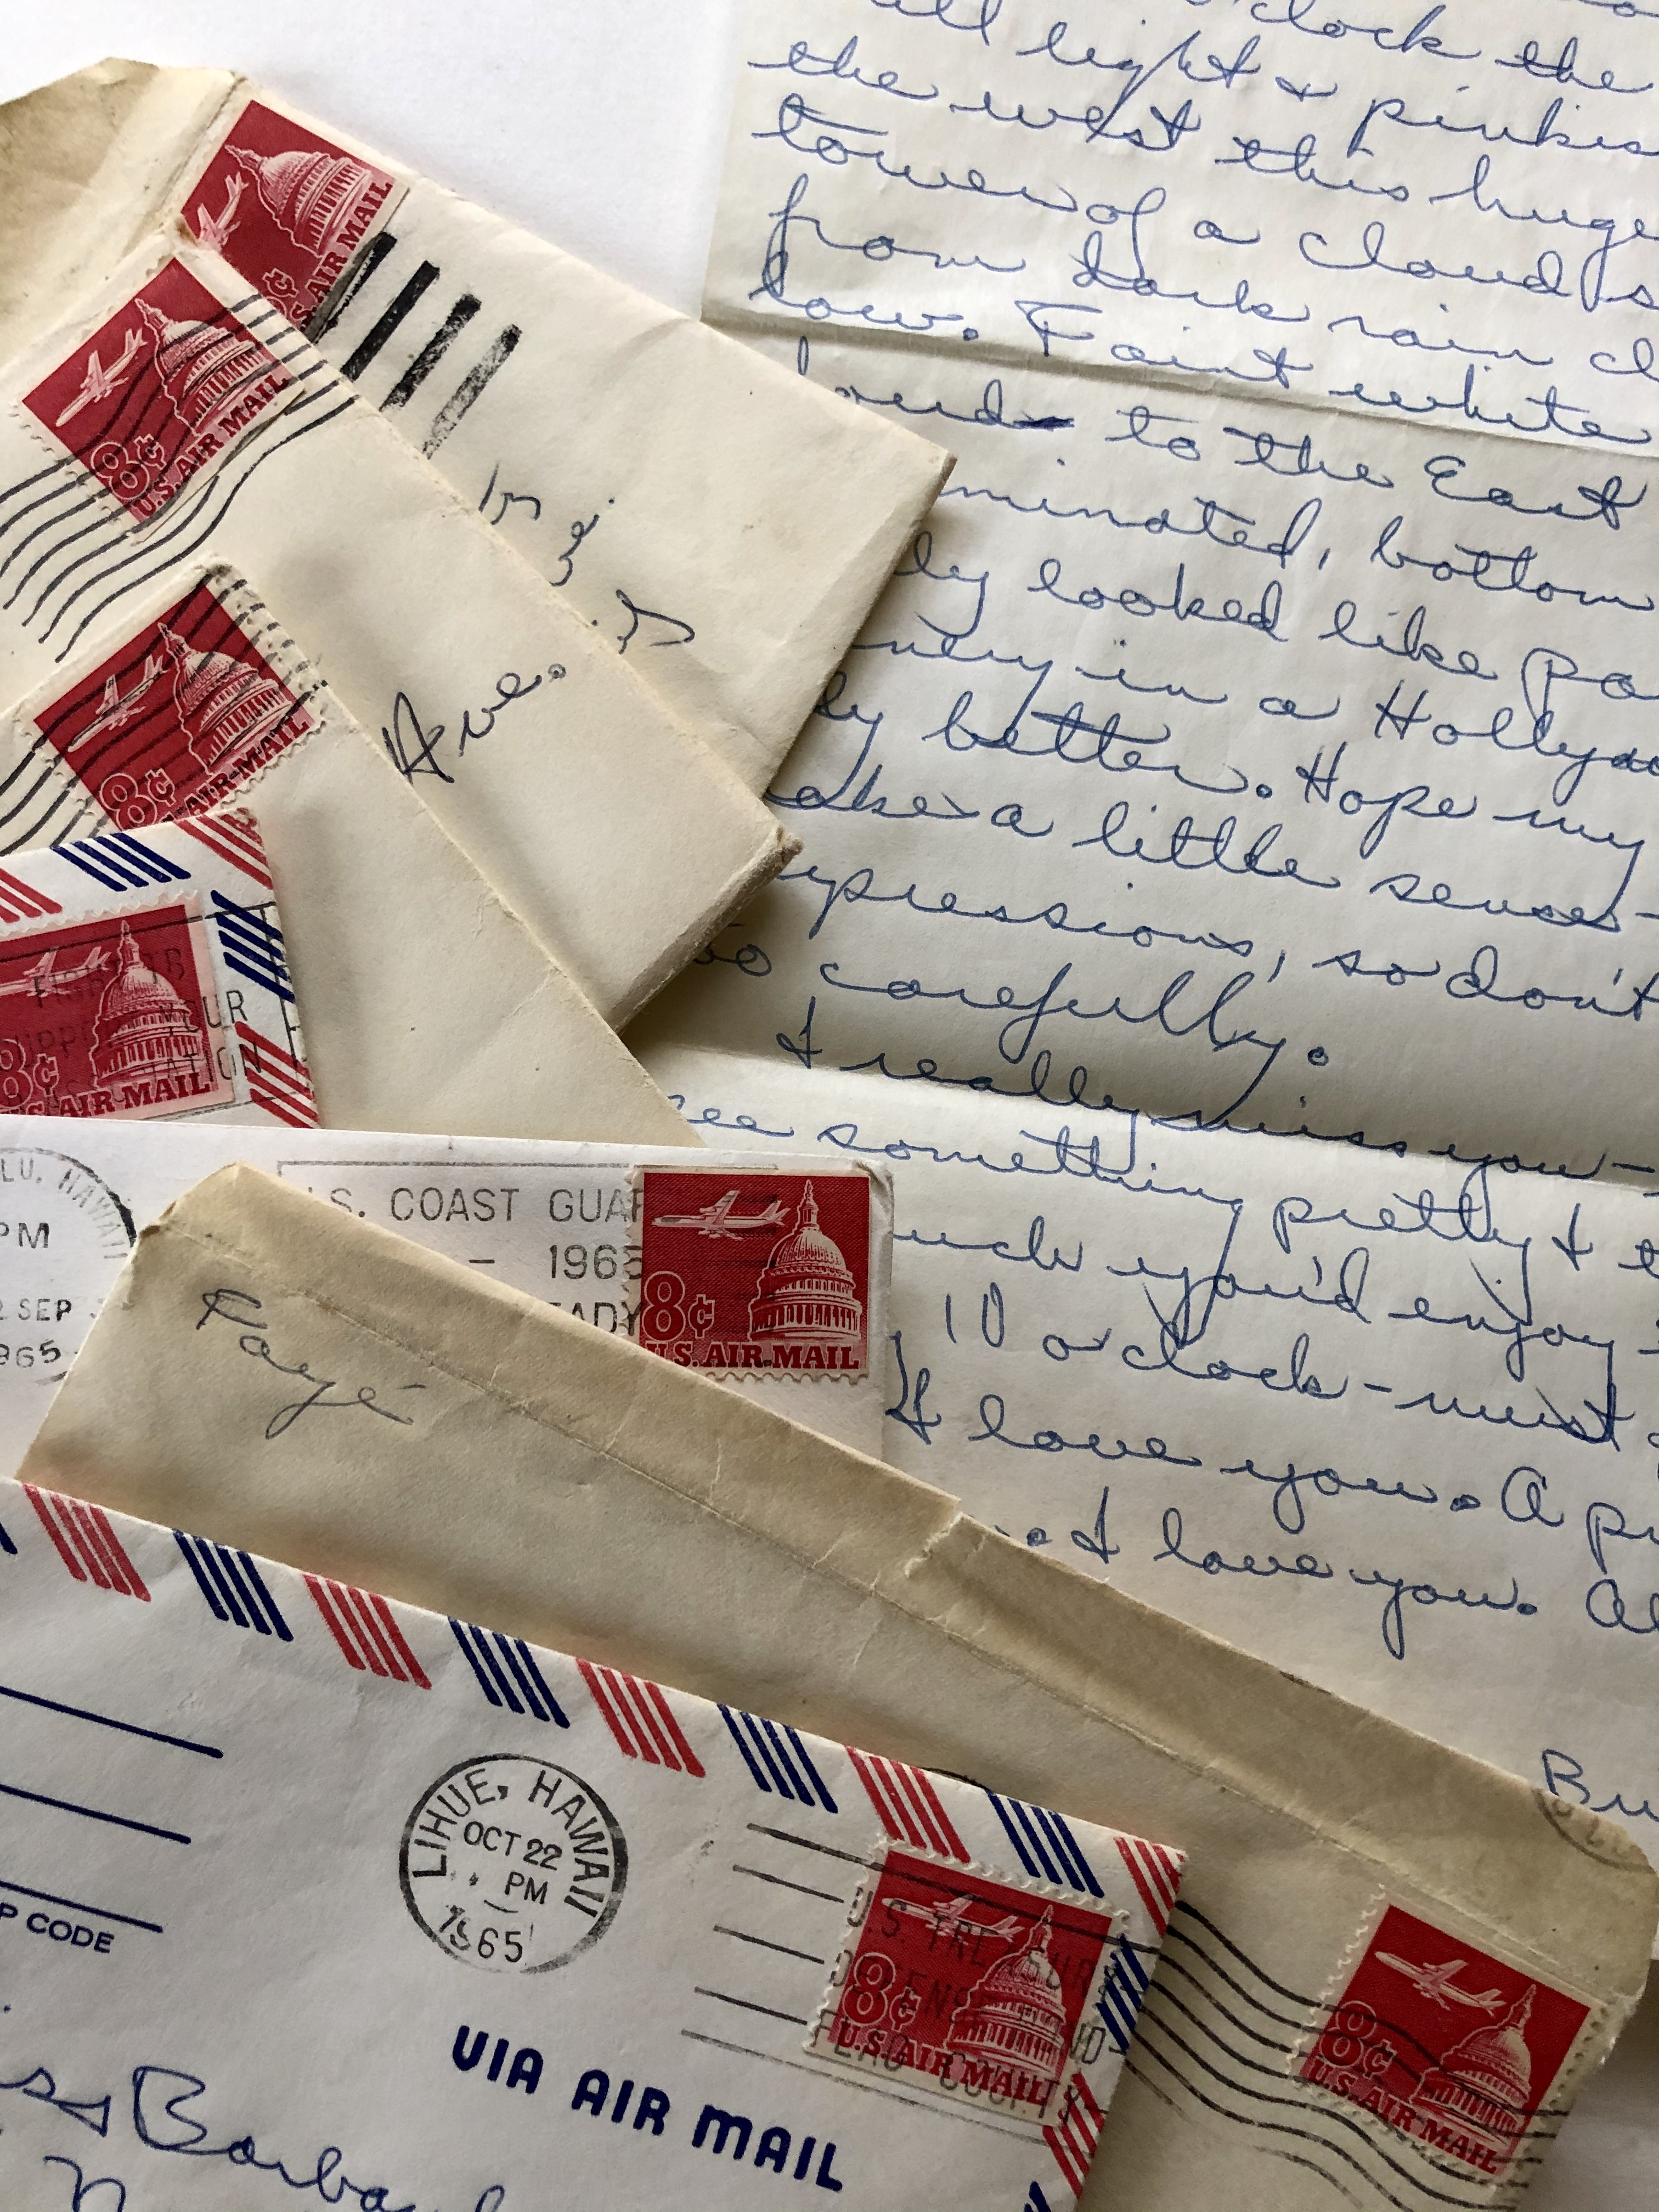 o'clock the
all light & pinkis
the west this huge
tower of a cloud s
from dark rain cl
low. Faint white
to the East
minated, bottom
ly looked like pa
in a Hollywo
ly better. Hope my
a little sense -
xpressions, so don't
too carefully.
I really miss you -
see something pretty & t
uch you'd enjoy
10 o'clock - must
I love you. A p
I love you. Al
Bu
U.S. AIR MAIL
8¢
U.S. AIR MAIL
Ave.
8¢
U.S. AIR MAIL
8¢
U.S. AIR MAIL
YOUR
LU, HAWAII
PM
SEP
1965
U.S. COAST GUAR
- 1965
EADY
8¢
U.S. AIR MAIL
Faye
LIHUE, HAWAII
OCT 22
PM
1965
P CODE
U.S. TREASURY
8¢
U.S. AIR MAIL
VIA AIR MAIL
8¢
U.S. AIR MAIL
ss Barba